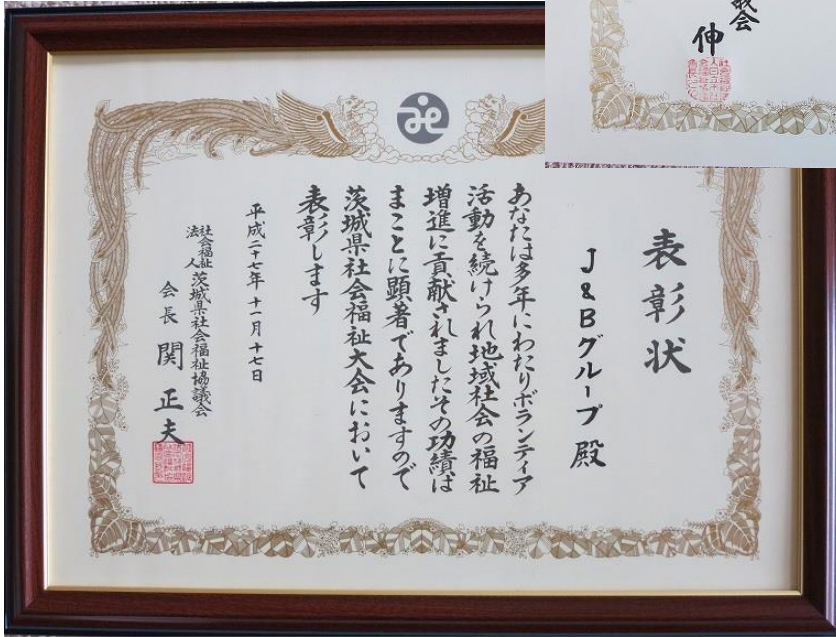 表彰状
J&Bグループ 殿
あなたは多年にわたりボランティア
活動を続けられ地域社会の福祉
増進に貢献されましたその功績は
まことに顕著でありますので
茨城県社会福祉大会において
表彰します
平成二十七年 十一月 十七日
社会福祉法人 茨城県社会福祉協議会
会長 関 正夫
議会
伸